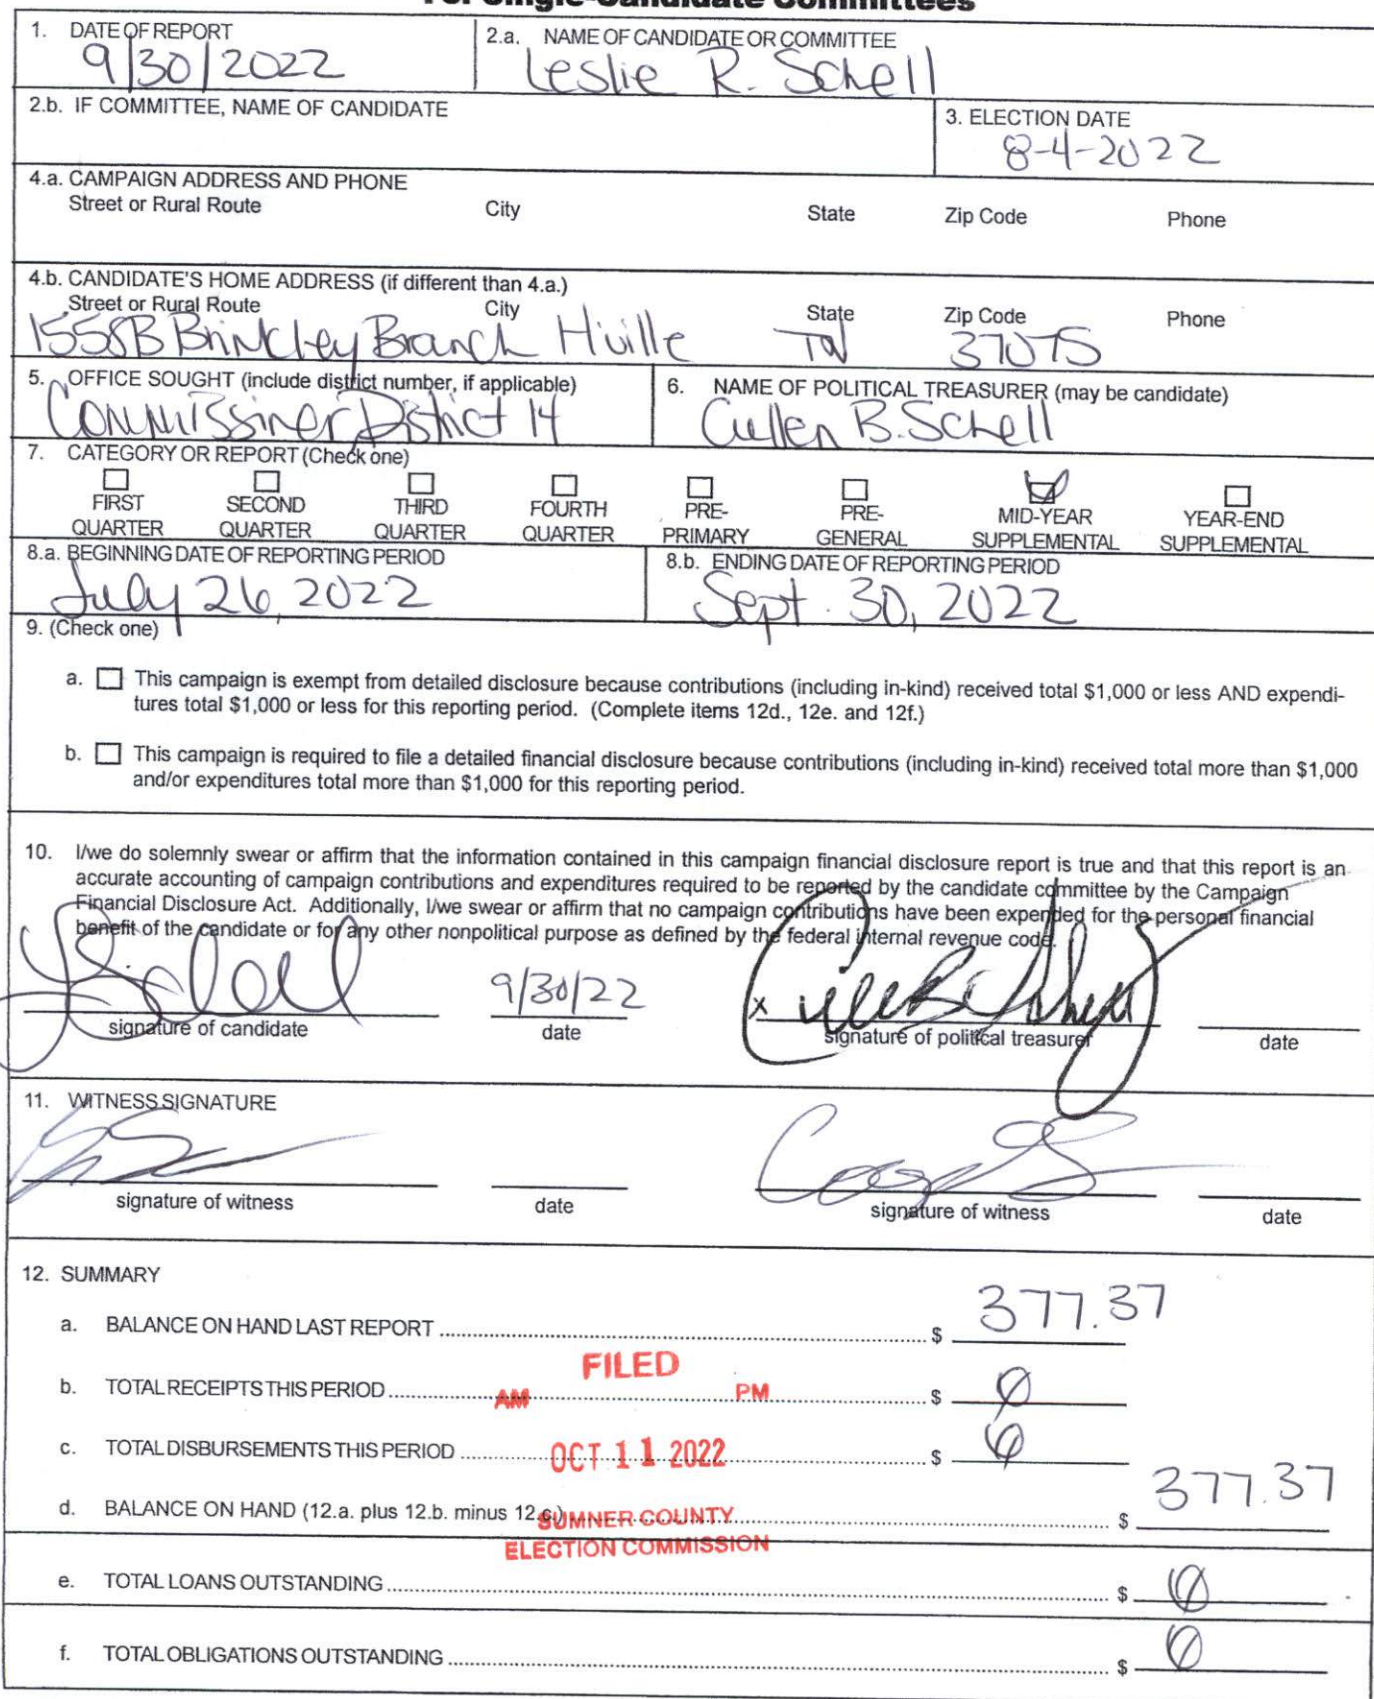 For Single-Candidate Committees
1. DATE OF REPORT
9/30/2022
2.a. NAME OF CANDIDATE OR COMMITTEE
Leslie R. Schell
2.b. IF COMMITTEE, NAME OF CANDIDATE
3. ELECTION DATE
8-4-2022
4.a. CAMPAIGN ADDRESS AND PHONE
Street or Rural Route City State Zip Code Phone
4.b. CANDIDATE'S HOME ADDRESS (if different than 4.a.)
Street or Rural Route City State Zip Code Phone
1558B Brinkley Branch H'ville TN 37075
5. OFFICE SOUGHT (include district number, if applicable)
Commissiner District 14
6. NAME OF POLITICAL TREASURER (may be candidate)
Cullen B. Schell
7. CATEGORY OR REPORT (Check one)
FIRST QUARTER
SECOND QUARTER
THIRD QUARTER
FOURTH QUARTER
PRE-PRIMARY
PRE-GENERAL
MID-YEAR SUPPLEMENTAL
YEAR-END SUPPLEMENTAL
8.a. BEGINNING DATE OF REPORTING PERIOD
July 26, 2022
8.b. ENDING DATE OF REPORTING PERIOD
Sept. 30, 2022
9. (Check one)
a. This campaign is exempt from detailed disclosure because contributions (including in-kind) received total $1,000 or less AND expendi-
tures total $1,000 or less for this reporting period. (Complete items 12d., 12e. and 12f.)
b. This campaign is required to file a detailed financial disclosure because contributions (including in-kind) received total more than $1,000
and/or expenditures total more than $1,000 for this reporting period.
10. I/we do solemnly swear or affirm that the information contained in this campaign financial disclosure report is true and that this report is an
accurate accounting of campaign contributions and expenditures required to be reported by the candidate committee by the Campaign
Financial Disclosure Act. Additionally, I/we swear or affirm that no campaign contributions have been expended for the personal financial
benefit of the candidate or for any other nonpolitical purpose as defined by the federal internal revenue code.
9/30/22
x
signature of candidate date signature of political treasurer date
11. WITNESS SIGNATURE
signature of witness date signature of witness date
12. SUMMARY
a. BALANCE ON HAND LAST REPORT $ 377.37
FILED
b. TOTAL RECEIPTS THIS PERIOD $ 0
AM PM
c. TOTAL DISBURSEMENTS THIS PERIOD $ 0
OCT 11 2022
d. BALANCE ON HAND (12.a. plus 12.b. minus 12.c.) $ 377.37
SUMNER COUNTY
ELECTION COMMISSION
e. TOTAL LOANS OUTSTANDING $ 0
f. TOTAL OBLIGATIONS OUTSTANDING $ 0